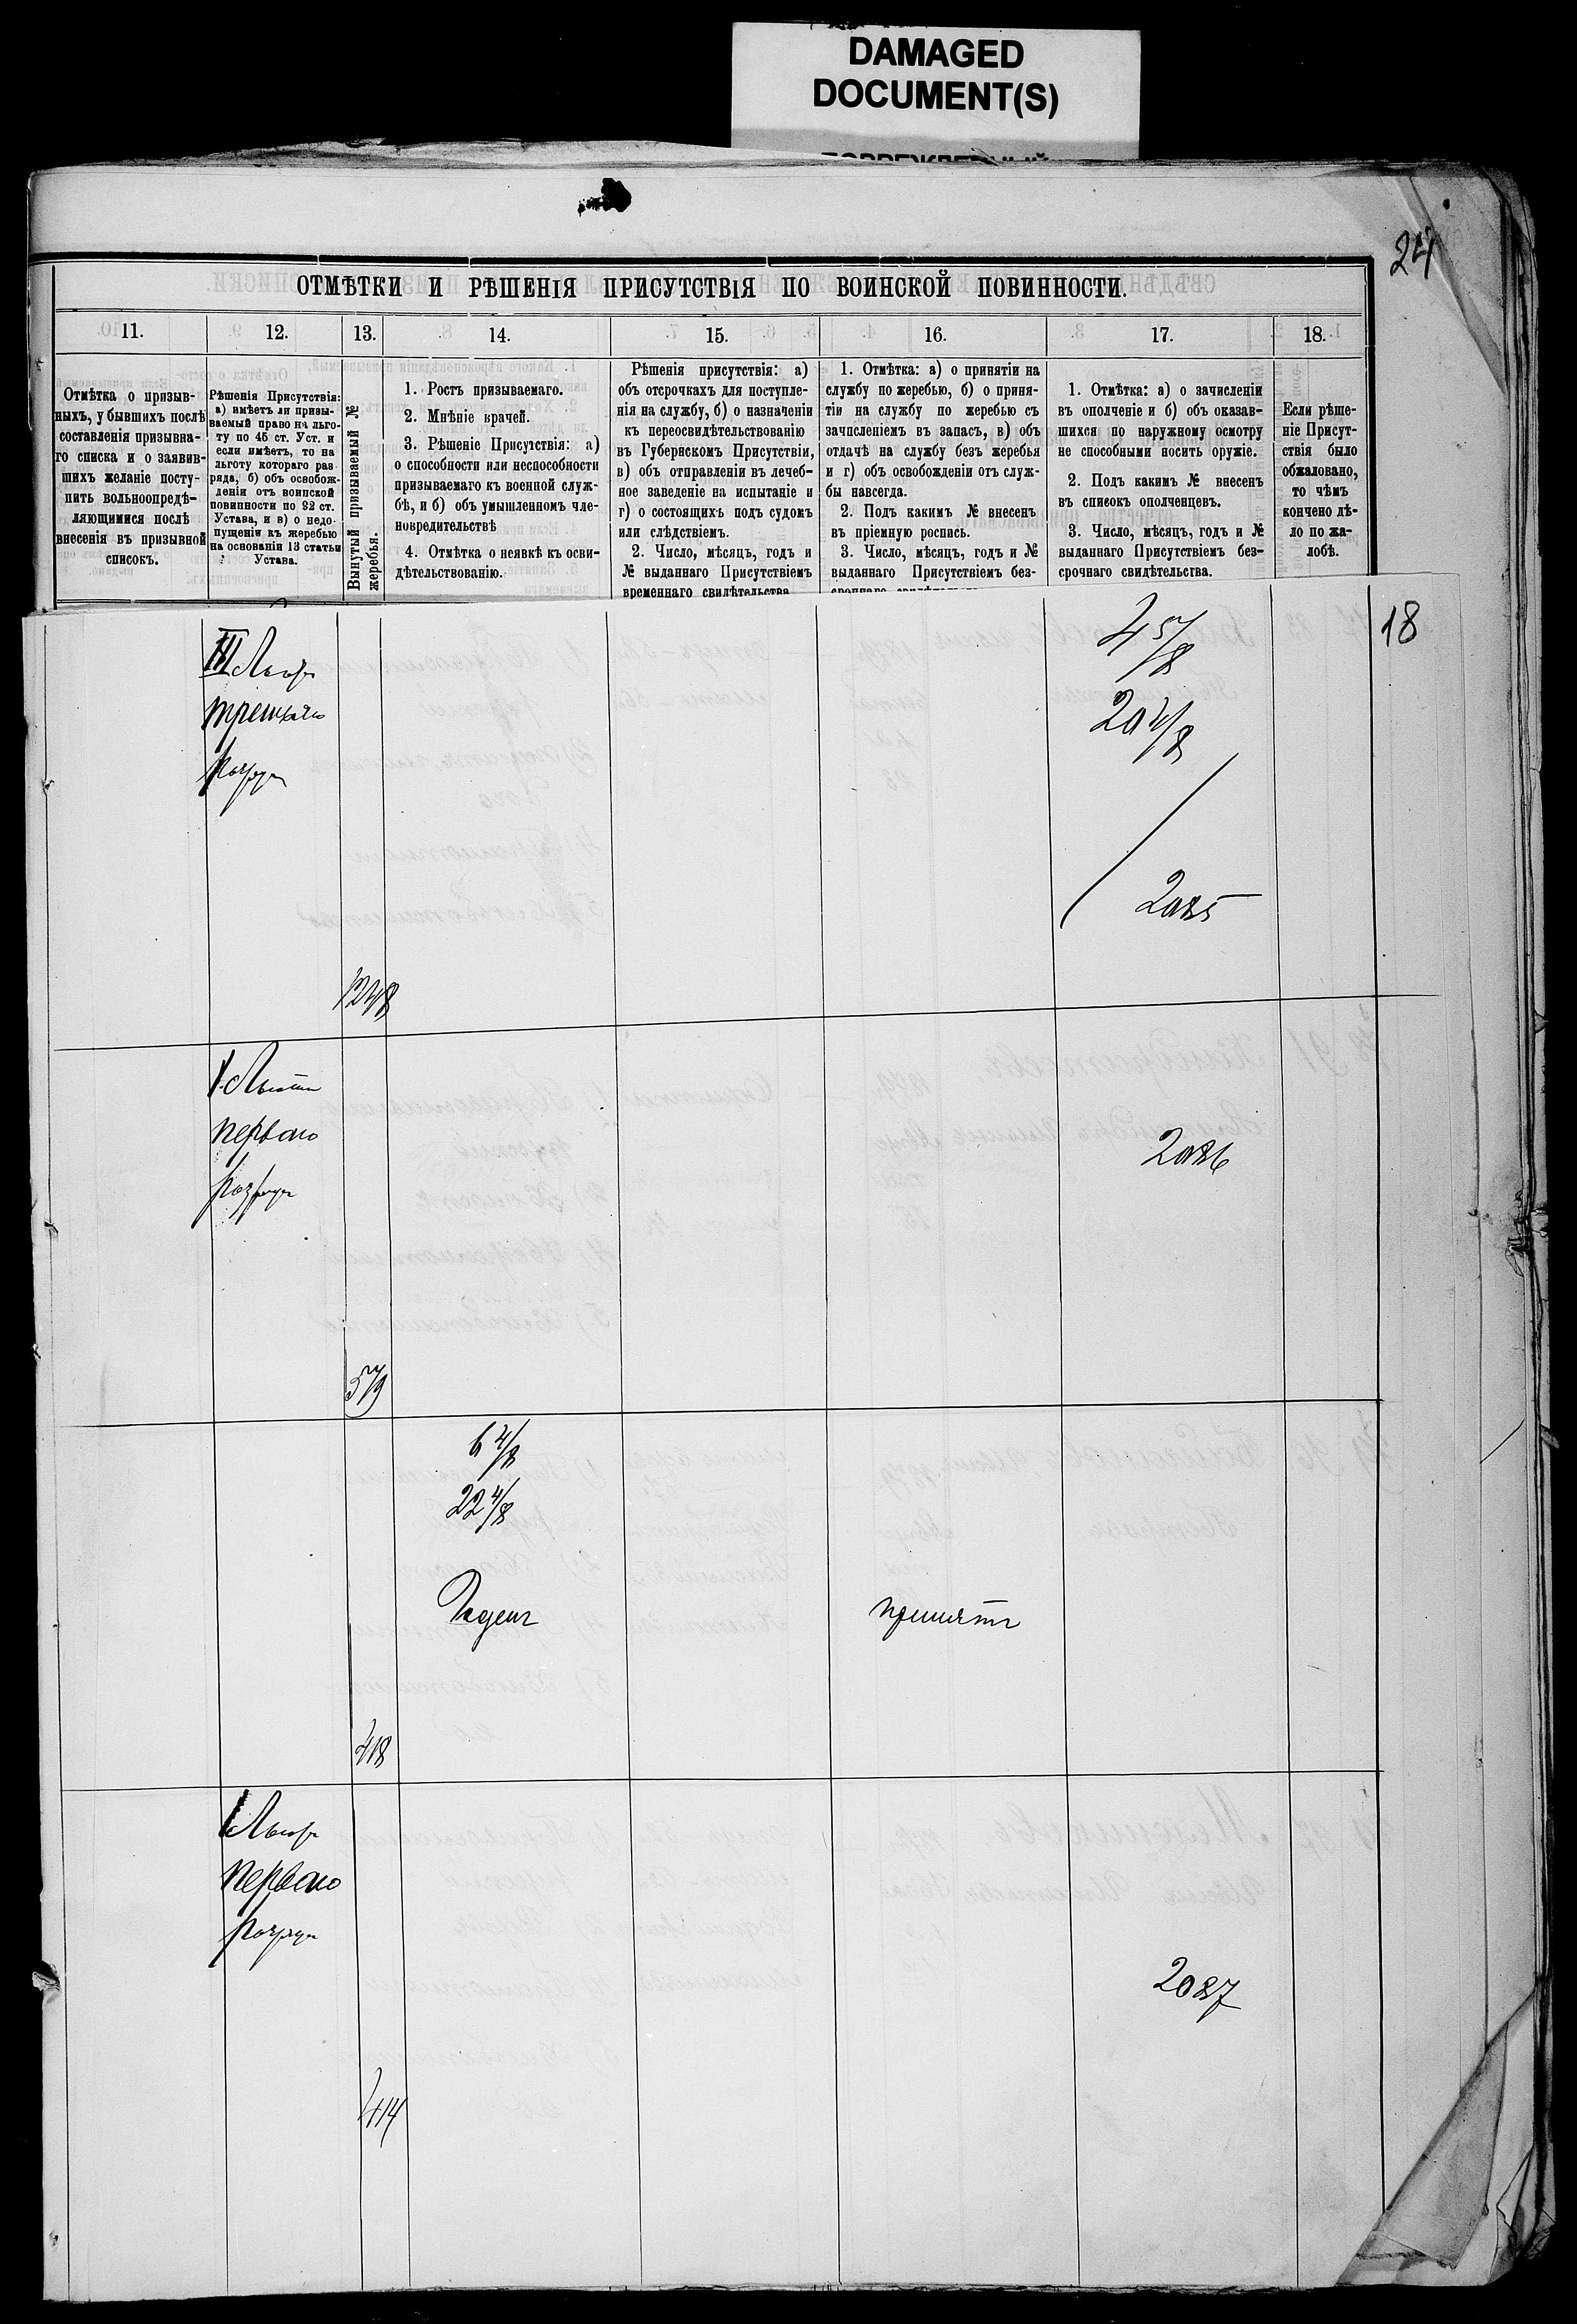 DAMAGED
DOCUMENT(S)
24
ОТМѢТКИ И РѢШЕНІЯ ПРИСУТСТВІЯ ПО ВОИНСКОЙ ПОВИННОСТИ.
11.
12.
13.
14.
15.
16.
17.
18.
Отмѣтка о призыв-
ныхъ, у бывшихъ послѣ
составленія призывна-
го списка и о заявив-
шихъ желаніе посту-
пить вольноопредѣ-
ляющимися послѣ
внесенія въ призывной
списокъ.
Рѣшенія Присутствія:
а) имѣетъ ли призы-
ваемый право на льго-
ту по 45 ст. Уст. и
если имѣетъ, то на
льготу котораго раз
ряда, б) объ освобож-
деніи отъ воинской
повинности по 92 ст.
Устава, и в) о недо-
пущеніи къ жеребью
на основаніи 13 статьи
Устава.
Вынутый призываемый №
жеребья.
1. Ростъ призываемаго.
2. Мнѣніе врачей.
3. Рѣшеніе Присутствія: а)
о способности или неспособности
призываемаго къ военной служ-
бѣ, и б) объ умышленномъ чле-
новредительствѣ
4. Отмѣтка о неявкѣ къ осви-
дѣтельствованію.
Рѣшенія присутствія: а)
объ отсрочкахъ для поступле-
нія на службу, б) о назначеніи
къ переосвидѣтельствованію
въ Губернскомъ Присутствіи,
в) объ отправленіи въ лечеб-
ное заведеніе на испытаніе и
г) о состоящихъ подъ судомъ
или слѣдствіемъ.
2. Число, мѣсяцъ, годъ и
№ выданнаго Присутствіемъ
временнаго свидѣтельства
1. Отмѣтка: а) о принятіи на
службу по жеребью, б) о приня-
тіи на службу по жеребью съ
зачисленіемъ въ запасъ, в) объ
отдачѣ на службу безъ жеребья
и г) объ освобожденіи отъ служ-
бы навсегда.
2. Подъ какимъ № внесенъ
въ пріемную роспись.
3. Число, мѣсяцъ, годъ и №
выданнаго Присутствіемъ без-
1. Отмѣтка: а) о зачисленіи
въ ополченіе и б) объ оказав-
шихся по наружному осмотру
не способными носить оружіе.
2. Подъ какимъ № внесенъ
въ списокъ ополченцевъ.
3. Число, мѣсяцъ, годъ и №
выданнаго Присутствіемъ без-
срочнаго свидѣтельства.
Если рѣше-
ніе Присут-
ствія было
обжаловано,
то чѣмъ
кончено дѣ-
ло по жа-
лобѣ.
18
III Льгот
третьяго
разряда
4 5/8
20 4/8
2085
1248
I. Льготы
перваго
разряда
2086
579
6 4/8
22 4/8
Годенъ
принятъ
418
I Льгот
перваго
разряда
2087
414